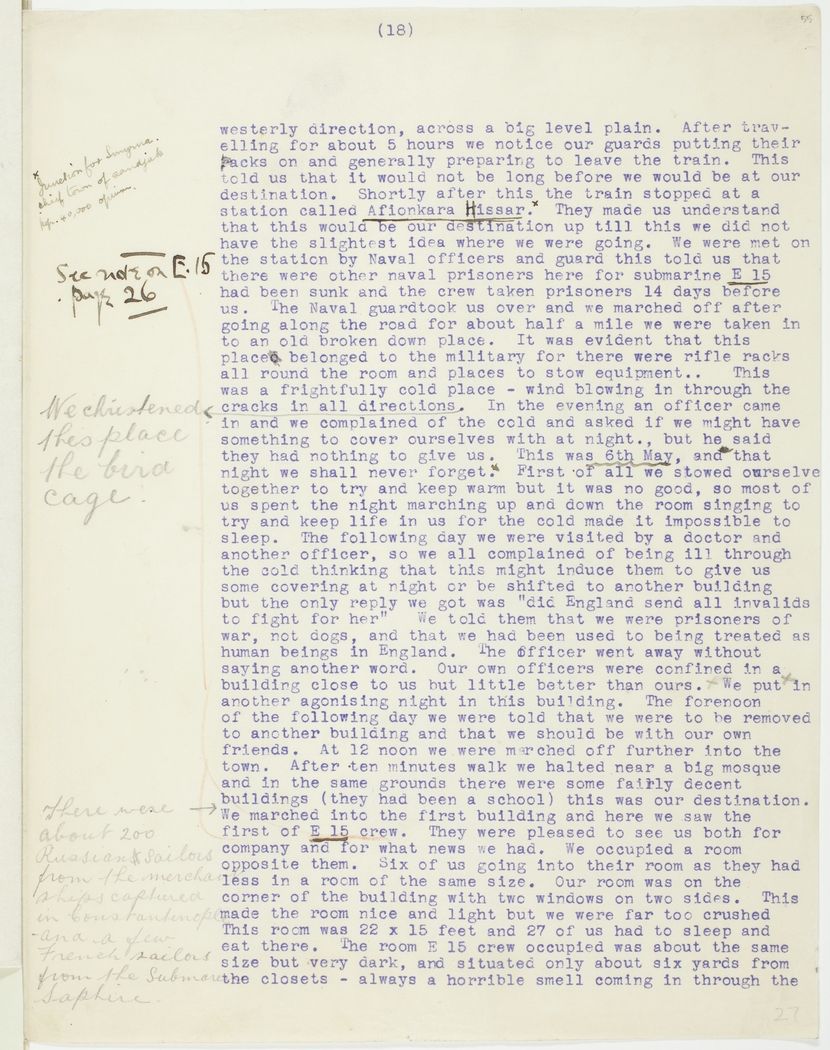 (18)
55
westerly direction, across a big level plain. After trav-
elling for about 5 hours we notice our guards putting their
packs on and generally preparing to leave the train. This
told us that it would not be long before we would be at our
destination. Shortly after this the train stopped at a
station called Afionkara Hissar.x They made us understand
that this would be our destination up till this we did not
have the slightest idea where we were going. We were met on
the station by Naval officers and guard this told us that
there were other naval prisoners here for submarine E 15
had been sunk and the crew taken prisoners 14 days before
us. The Naval guardtook us over and we marched off after
going along the road for about half a mile we were taken in
to an old broken down place. It was evident that this
place belonged to the military for there were rifle racks
all round the room and places to stow equipment.. This
was a frightfully cold place - wind blowing in through the
cracks in all directions. In the evening an officer came
in and we complained of the cold and asked if we might have
something to cover ourselves with at night., but he said
they had nothing to give us. This was 6th May, and that
night we shall never forget. First of all we stowed ourselve
together to try and keep warm but it was no good, so most of
us spent the night marching up and down the room singing to
try and keep life in us for the cold made it impossible to
sleep. The following day we were visited by a doctor and
another officer, so we all complained of being ill through
the cold thinking that this might induce them to give us
some covering at night or be shifted to another building
but the only reply we got was "did England send all invalids
to fight for her" We told them that we were prisoners of
war, not dogs, and that we had been used to being treated as
human beings in England. The officer went away without
saying another word. Our own officers were confined in a
building close to us but little better than ours. We put in
another agonising night in this building. The forenoon
of the following day we were told that we were to be removed
to another building and that we should be with our own
friends. At 12 noon we were marched off further into the
town. After ten minutes walk we halted near a big mosque
and in the same grounds there were some fairly decent
buildings (they had been a school) this was our destination.
We marched into the first building and here we saw the
first of E 15 crew. They were pleased to see us both for
company and for what news we had. We occupied a room
opposite them. Six of us going into their room as they had
less in a room of the same size. Our room was on the
corner of the building with two windows on two sides. This
made the room nice and light but we were far too crushed
This room was 22 x 15 feet and 27 of us had to sleep and
eat there. The room E 15 crew occupied was about the same
size but very dark, and situated only about six yards from
the closets - always a horrible smell coming in through the
x Junction for Smyrna.
chief town of sandjak
pp. 40,000 opium.
See note on E.15
page 26
We christened
this place
the bird
cage.
There were
about 200
Russian Sailors
from the mercha
ships captured
in Constantinople
and a few
French sailors
from the Submarine
Saphire.
27